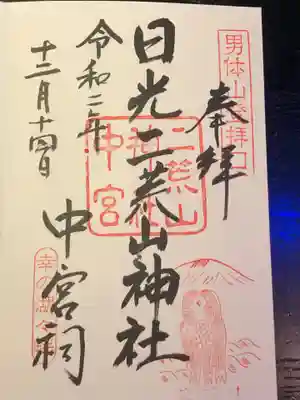 奉拝
日光二荒山神社
中宮祠
令和二年
十二月十四日
男体山登拝口
二荒山
神社
中宮